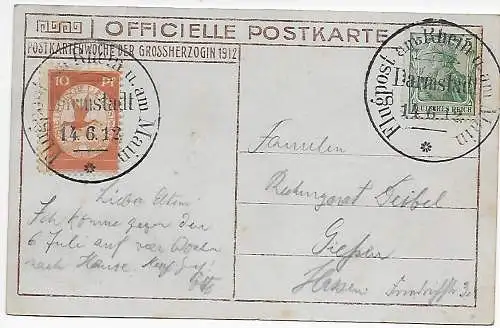 OFFICIELLE POSTKARTE
POSTKARTENWOCHE DER GROSSHERZOGIN 1912
10 Pf
Flugpost am Rhein u. am Main
Darmstadt
14.6.12
Flugpost am Rhein u. am Main
Darmstadt
14.6.12
DEUTSCHES REICH
Familie
Rechnungsrat Seibel
Gießen
Hessen
Liebe Eltern!
Ich komme gegen den
6 Juli auf vier Wochen
nach Hause.
Otto